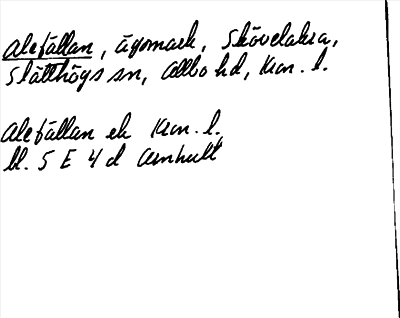 Alefällan, ägomark, Skövelåkra,
Slätthögs sn, Allbo hd, Kron. l.

Alefällan ek Kron. l.
bl. 5 E 4 d Älmhult